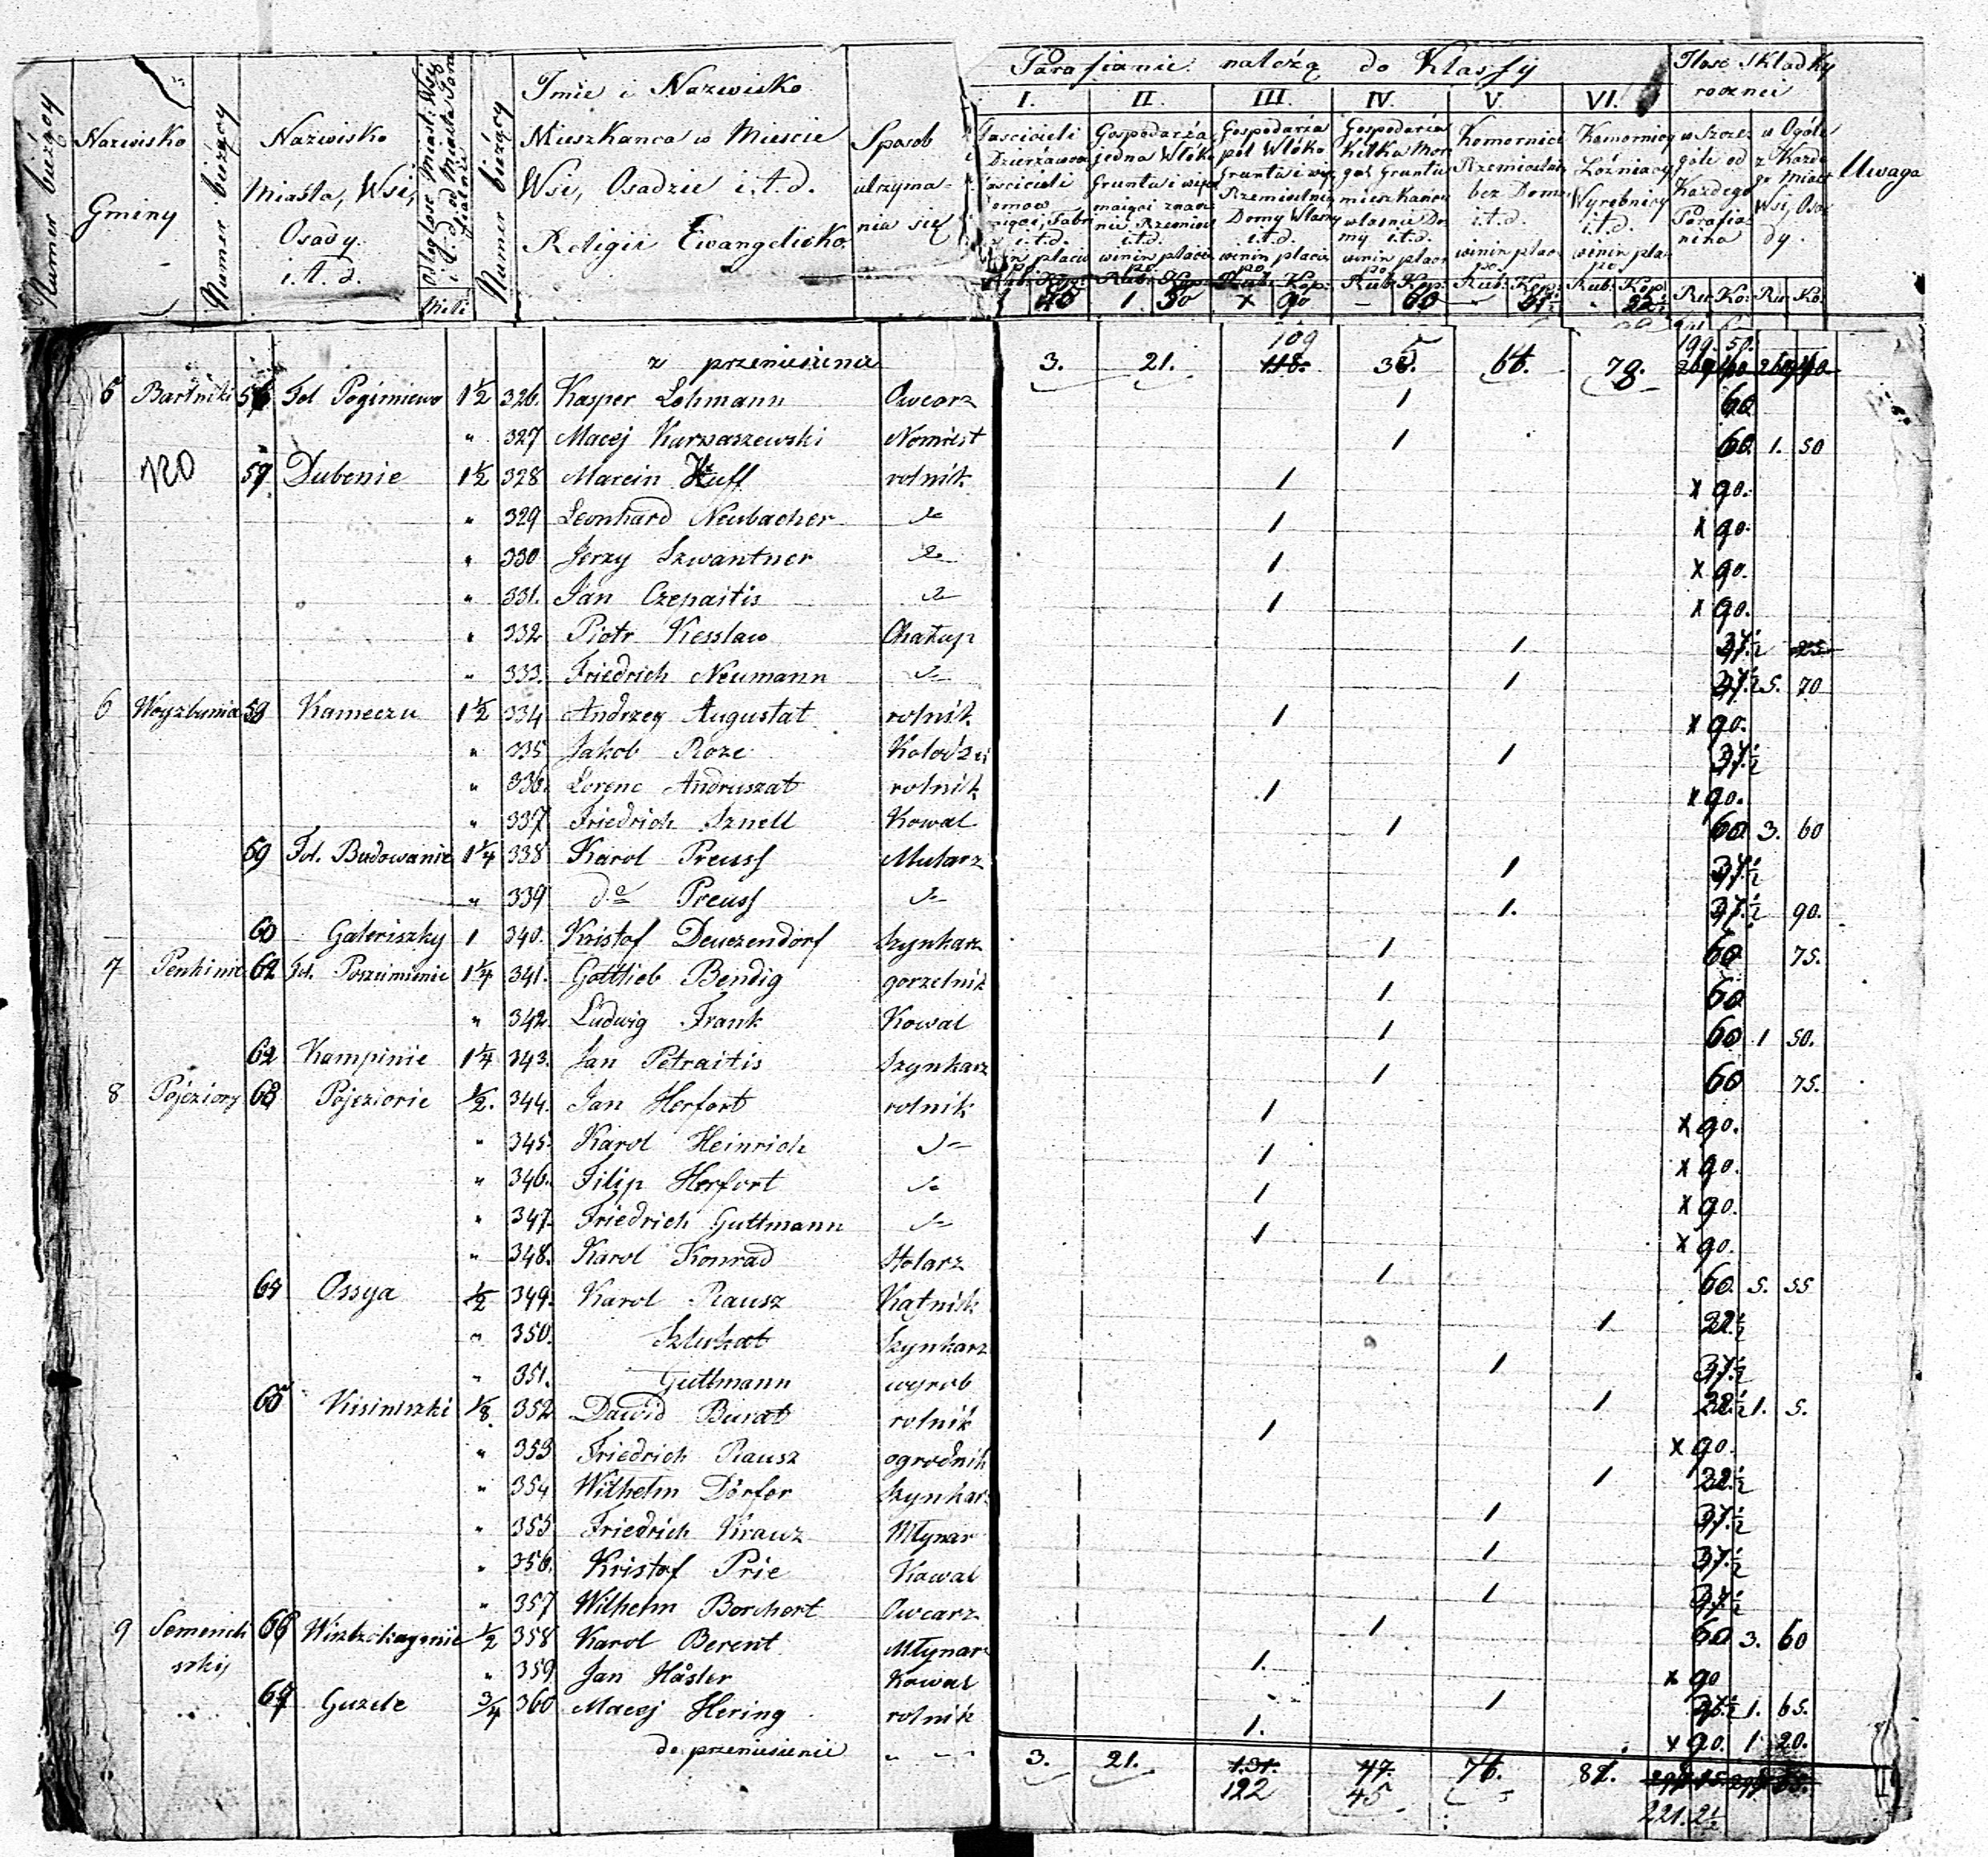 Numer bieżący
Nazwisko Gminy
Numer bieżący
Nazwisko Miasta, Wsi, Osady i.t.d.
Odległość Miast: Wsi i.t.d. od Miasta Para
Mili
Numer bieżący
Imie i Nazwisko Mieszkanca w Miescie Wsi, Osadzie i.t.d. Religii Ewangelicko
Sposob utrzyma- nia się
Parafianie należą do Klassy
I. II. III. IV. V. VI.
Ilość Składky rocznei
Gospodarza jedna Włóke Gruntu i więc i.t.d. winin placic po
Gospodarza pół Włóke Gruntu i wię Rzemieslnic Domy Własny i.t.d. winin placic po
Gospodarza Kilka Mor gow Gruntu mieszkance własnie Do- my i.t.d. winin plac po
Komornici Rzemieslni bez Domu i.t.d. winin plac po
Komornicy Loźniacy Wyrobnicy i.t.d. winin pla po
w Szcze góle od Każdego Parafia- nina
w Ogóle z Każde go Miast Wsi, Osa dy.
Uwaga
Rub: Kop: Rub: Kop: Rub: Kop: Rub: Kop: Rub: Kop: Rub: Kop: Ru Ko: Ru Ko.
1 50 x 90 - 60
z przeniesienia 3. 21. 118. 109 38. 66. 79. 199. 50.
6 Bartniki 56 Fol Pogirniewo 1½ 326. Kasper Lehmann Owcarz 1 60
" 327 Maciej Kurwaszewski Nomiest 1 60. 1. 50
57 Dubenie 1½ 328 Marcin Kuff rolnik 1 x 90.
" 329 Leonhard Neubacher 1 x 90.
" 330 Jerzy Szwantner 1 x 90.
" 331. Jan Czepaitis 1 x 90.
" 332 Piotr Kesslaw Chałup 1 37½ 25
" 333. Friedrich Neumann 1 37½ 5. 70
6 Woyzbunia 58 Kameczu 1½ 334 Andrzey Augustat rolnik 1 x 90.
" 335 Jakob Roze Kolodzei 1 37½
" 336. Lorenc Andruszat rolnik 1 x 90.
" 337 Friedrich Sznell Kowal 1 60 3. 60
59 Fol. Budowanie 1¼ 338 Karol Preuss Mularz 1 37½
" 339 do Preuss 1. 37½ 90.
60 Galeriszky 1 340. Kristof Deuezendorf Szynkarz 1 60 75.
7 Penkinie 62 Fol. Poszimienie 1¼ 341. Gottlieb Bendig gorzelnik 1 60
" 342. Ludwig Frank Kowal 1 60 1 50.
62 Kampinie 1¼ 343. Jan Petraitis Szynkarz 1 60 75.
8 Pojeziory 63 Pojeziorie ½. 344. Jan Herfort rolnik 1 x 90.
" 345. Karol Heinrich 1 x 90.
" 346. Filip Herfort 1 x 90.
" 347. Friedrich Guttmann 1 x 90.
" 348. Karol Konrad Stolarz 1 60. 5. 55
64 Ossya ½ 349. Karol Rausz Kątnik 1 22½
" 350. Szlukat Szynkarz 1 37½
" 351. Guttmann wyrob 1 22½ 1. 5.
65 Kisiniszki ⅛ 352 Dawid Burat rolnik 1 x 90.
" 353 Friedrich Rausz ogrodnik 1 22½
" 354 Wilhelm Dörfer Szynkar 1 37½
" 355 Friedrich Krauz Młynar 1 37½
" 356. Kristof Prie Kowal 1 37½
" 357 Wilhelm Borchert Owcarz 1 60 3. 60
9 Semenisz szkij 66 ½ 358 Karol Berent Młynarz 1. x 90
" 359 Jan Häsler Kowal 1 37½ 1. 65.
67 Guzele ¾ 360 Maciej Hering rolnik 1. x 90. 1 20.
do przeniesienie 3. 21. 131. 47. 76. 82.
122 45
221. 2½